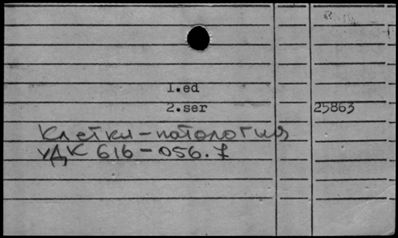 1.ed
2.ser 25863
Клетки-патология
УДК 616-056.7